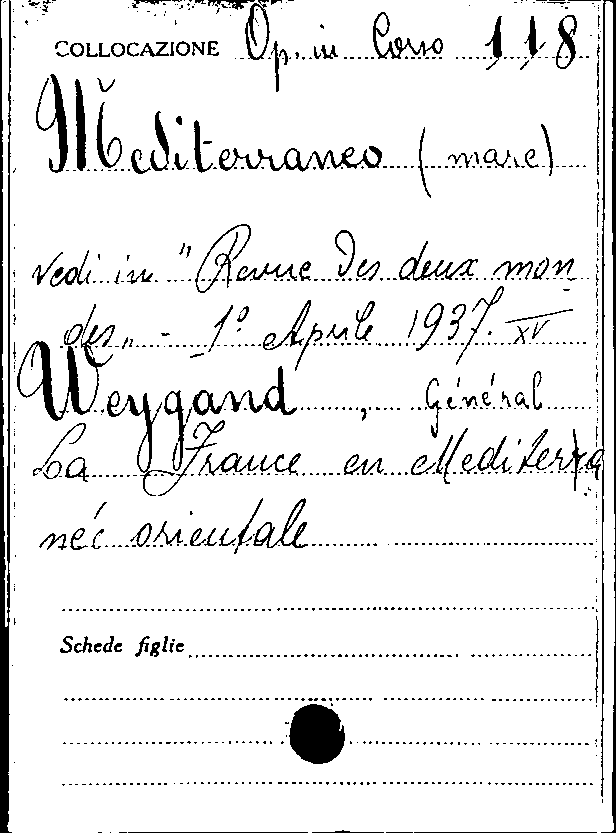 COLLOCAZIONE Op. in Corso 118
Mediterraneo (mare)
vedi in "Revue des deux mon
des„ - 1° Aprile 1937. XV
Weygand, Général
La France en Mediterra
neé orientale
Schede figlie